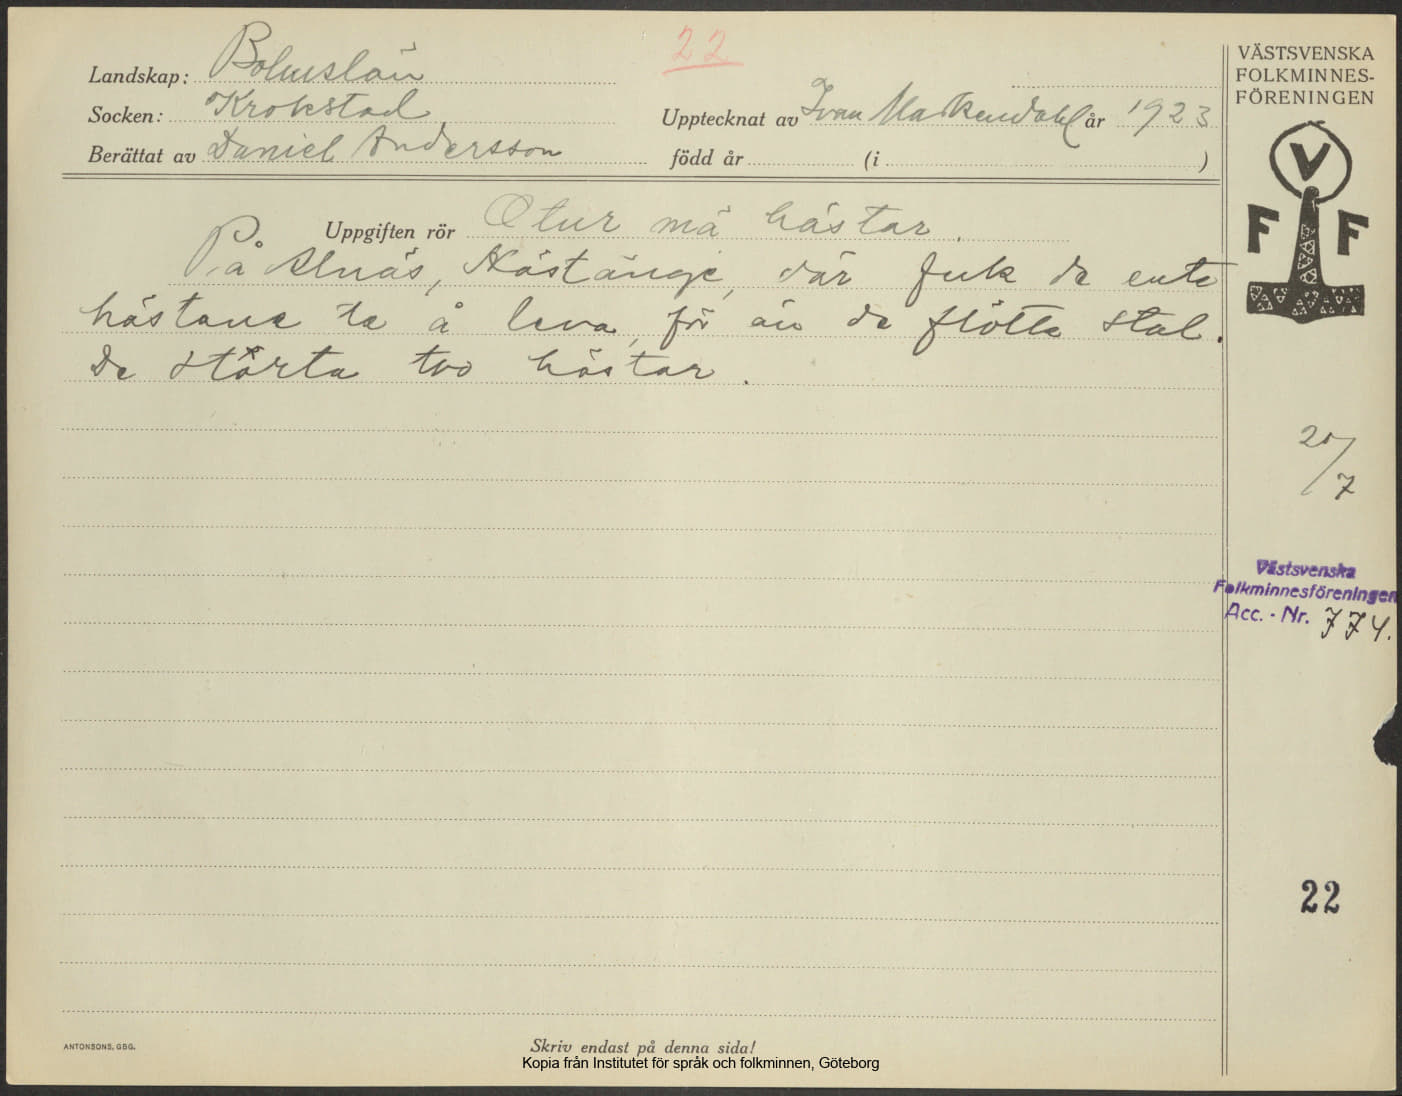 22
Landskap: Bohuslän
Socken: Krokstad
Upptecknat av Ivar Markendahl år 1923
Berättat av Daniel Andersson
född år (i )
Uppgiften rör Otur mä hästar.
På Alnäs, Hästänge, där fuk de ente
hästane te å leva, för än de flötte stal.
De störta två hästar.
VÄSTSVENSKA
FOLKMINNES-
FÖRENINGEN
V
F F
20/7
Västsvenska
Folkminnesföreningen
Acc. - Nr. 774.
22
ANTONSONS, GBG.
Skriv endast på denna sida!
Kopia från Institutet för språk och folkminnen, Göteborg